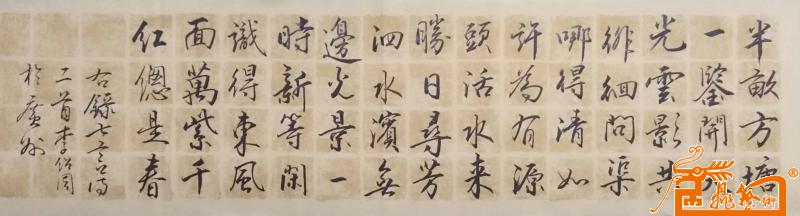 半畝方塘
一鑒開天
光雲影共
徘徊問渠
哪得清如
許為有源
頭活水來
勝日尋芳
泗水濱無
邊光景一
時新等閑
識得東風
面萬紫千
紅總是春
右錄七言詩
二首李紹周
於廣州